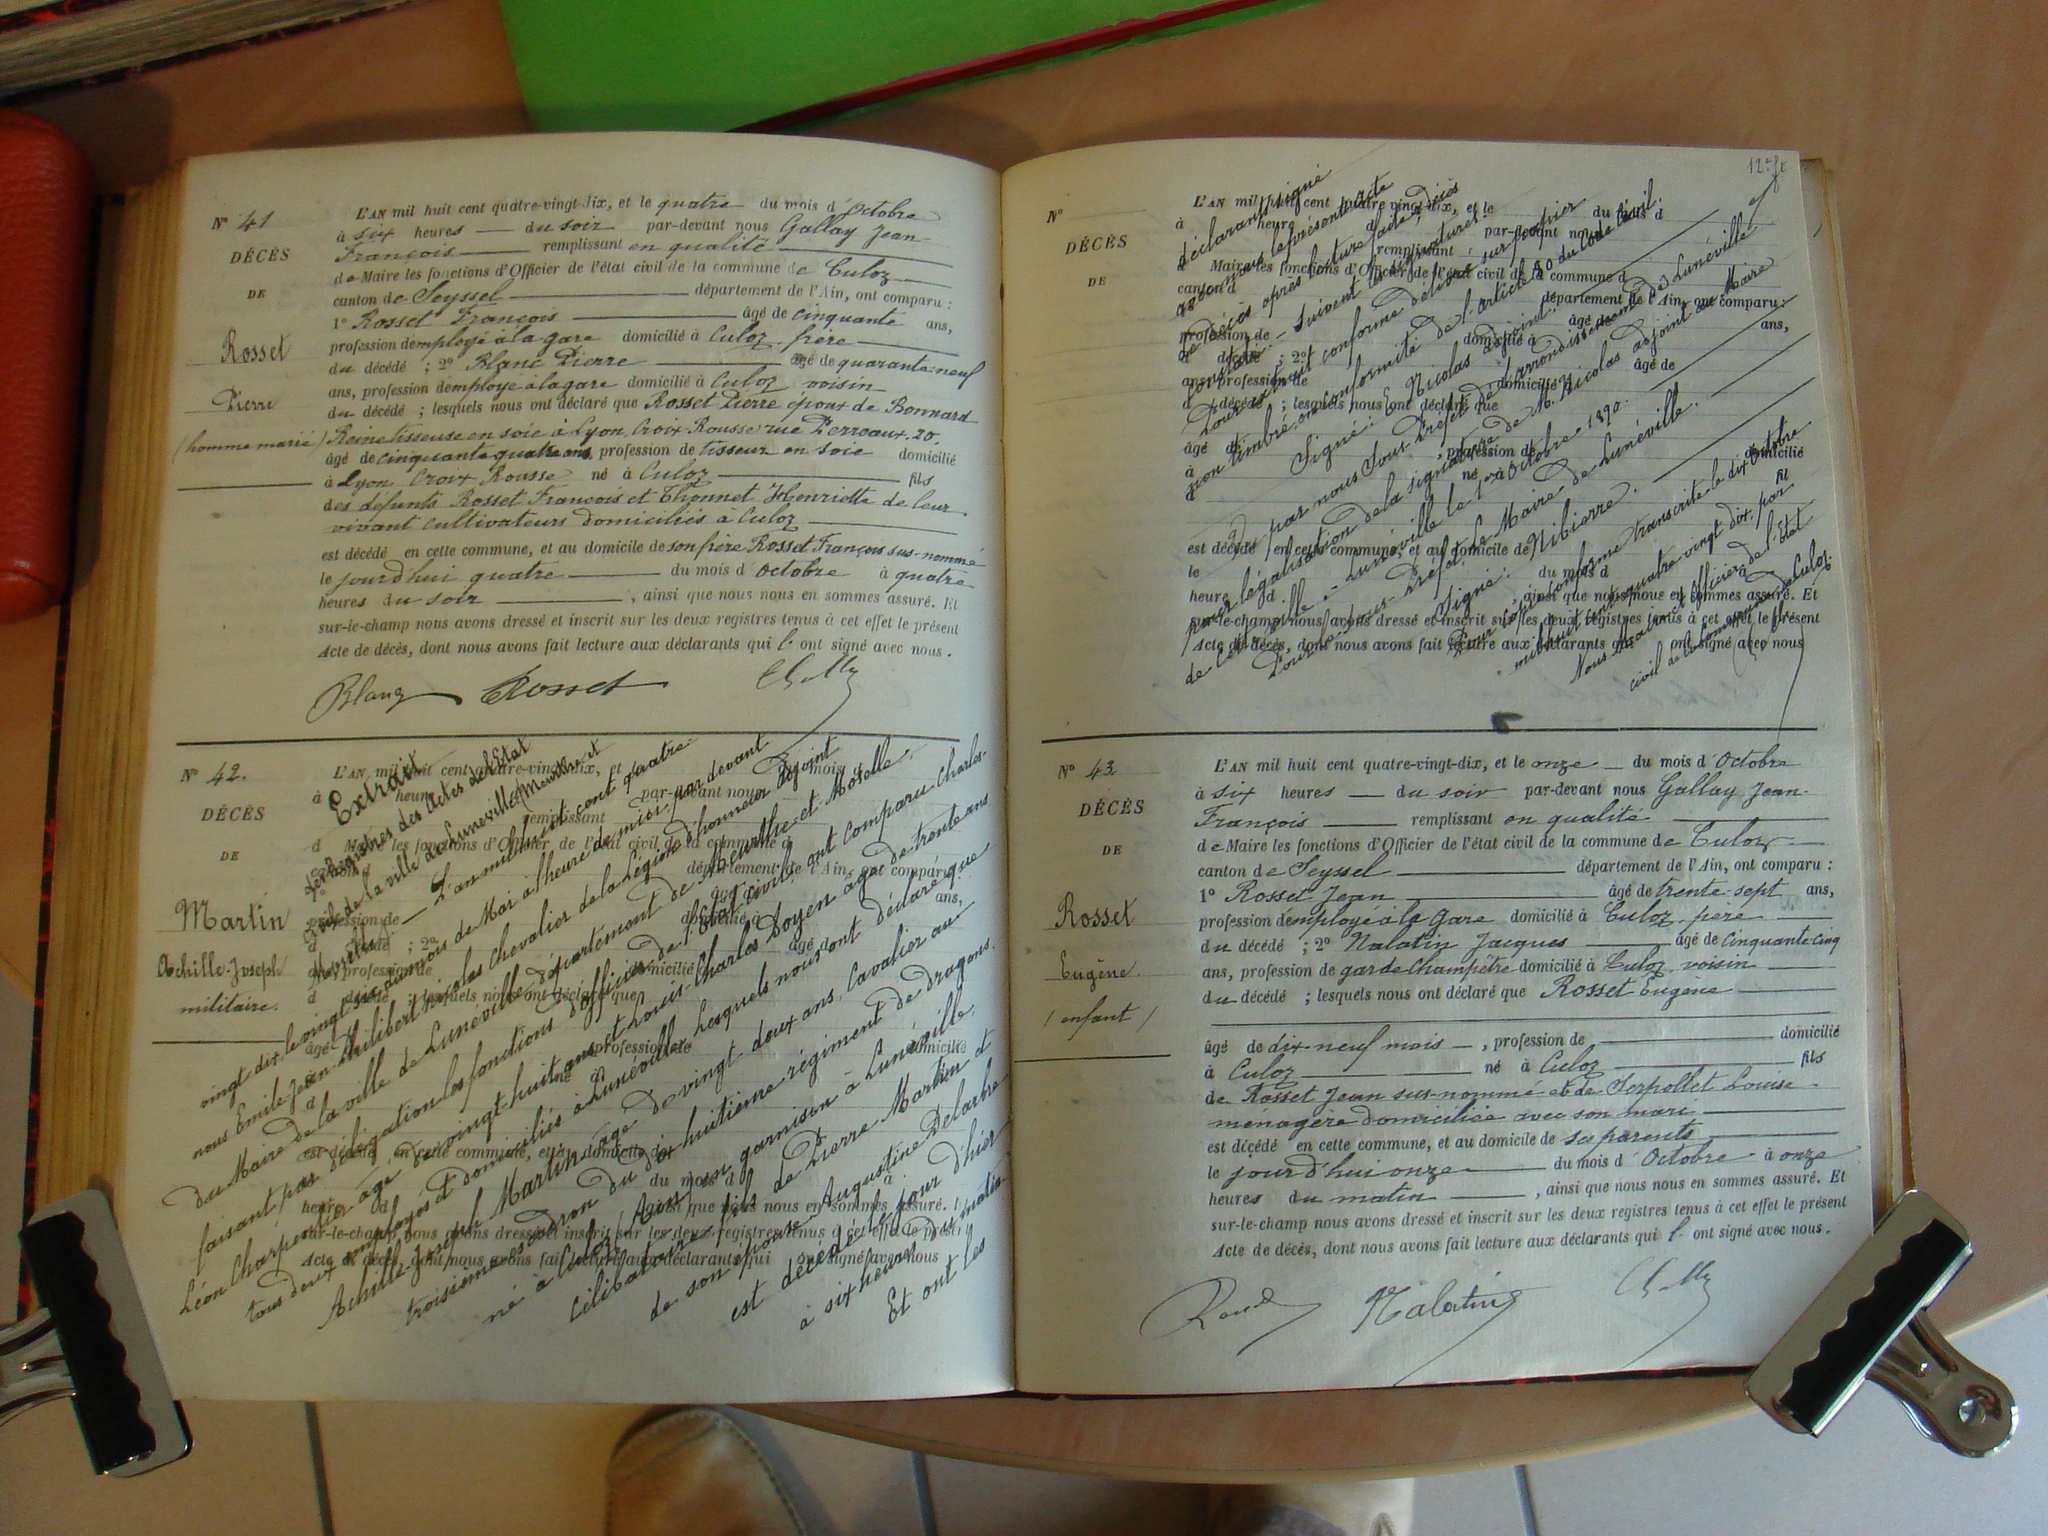 N° 41
DÉCÈS
DE
Rosset
Pierre
(homme marié)
L'AN mil huit cent quatre-vingt-dix, et le quatre du mois d'Octobre
à six heures — du soir par-devant nous Gallay Jean-
François — remplissant en qualité
de Maire les fonctions d'Officier de l'état civil de la commune de Culoz
canton de Seyssel — département de l'Ain, ont comparu :
1° Rosset François — âgé de cinquante ans,
profession d'employé à la gare domicilié à Culoz, frère
du décédé ; 2° Blanc Pierre — âgé de quarante-neuf
ans, profession d'employé à la gare domicilié à Culoz voisin
du décédé ; lesquels nous ont déclaré que Rosset Pierre époux de Bonnard
Reine tisseuse en soie à Lyon, Croix Rousse rue Perreaux. 20.
âgé de cinquante quatre ans, profession de tisseur en soie domicilié
à Lyon Croix Rousse né à Culoz — fils
des défunts Rosset François et Thonnet Henriette de leur
vivant cultivateurs domiciliés à Culoz
est décédé en cette commune, et au domicile de son frère Rosset François sus-nommé
le jourd'hui quatre — du mois d'Octobre à quatre
heures du soir — , ainsi que nous nous en sommes assuré. Et
sur-le-champ nous avons dressé et inscrit sur les deux registres tenus à cet effet le présent
Acte de décès, dont nous avons fait lecture aux déclarants qui l' ont signé avec nous.
Blanc Rosset
N° 42.
DÉCÈS
DE
Martin
Achille-Joseph
militaire.
Extrait
des Registres des Actes de l'Etat
Civil de la ville de Lunéville (Meurthe et
Moselle) — L'an mil huit cent quatre
vingt dix le vingt six du mois de Mai à l'heure de midi par devant
nous Emile-Jean-Philibert Nicolas Chevalier de la Légion d'honneur adjoint
du Maire de la ville de Lunéville département de Meurthe-et-Moselle,
faisant par délégation les fonctions d'officier de l'Etat civil, ont comparu Charles-
Léon Charpentier âgé de vingt-huit ans et Louis-Charles Doyen âgé de trente ans
tous deux employés et domiciliés à Lunéville lesquels nous ont déclaré que
Achille-Joseph Martin âgé de vingt-deux ans, Cavalier au
troisième escadron du dix huitième régiment de dragons.
en garnison à Lunéville,
né à Culoz (Ain)
célibataire fils de Pierre Martin et
de son épouse Augustine Delarbre
est décédé le jour d'hier
à six heures du matin
Et ont les
12
N°
DÉCÈS
DE
déclarants signé
avec nous le présent acte
de décès après lecture faite
Suivent les signatures
Pour extrait conforme délivré sur papier
non timbré en conformité de l'article 80 du Code civil.
Signé : E Nicolas adjoint.
Vu par nous Sous-Préfet de l'arrondissement de Lunéville
pour légalisation de la signature de M. Nicolas adjoint au Maire
de cette ville — Lunéville le 1er Octobre 1890.
Pour le Sous-Préfet le Maire de Lunéville.
Signé : Ribierre.
Pour copie conforme transcrite le dix Octobre
mil huit cent quatre vingt dix. par
Nous Maire officier de l'Etat
civil de la commune de Culoz.
N° 43
DÉCÈS
DE
Rosset
Eugène
(enfant)
L'AN mil huit cent quatre-vingt-dix, et le onze — du mois d'Octobre
à six heures — du soir par-devant nous Gallay Jean-
François — remplissant en qualité
de Maire les fonctions d'Officier de l'état civil de la commune de Culoz
canton de Seyssel — département de l'Ain, ont comparu :
1° Rosset Jean — âgé de trente-sept ans,
profession d'employé à la Gare domicilié à Culoz, père
du décédé ; 2° Nalatin Jacques — âgé de cinquante-cinq
ans, profession de garde champêtre domicilié à Culoz, voisin
du décédé ; lesquels nous ont déclaré que Rosset Eugène
âgé de dix-neuf mois — , profession de — domicilié
à Culoz — né à Culoz — fils
de Rosset Jean sus-nommé et de Serpollet Louise
ménagère domiciliée avec son mari
est décédé en cette commune, et au domicile de ses parents
le jourd'hui onze — du mois d'Octobre à onze
heures du matin — , ainsi que nous nous en sommes assuré. Et
sur-le-champ nous avons dressé et inscrit sur les deux registres tenus à cet effet le présent
Acte de décès, dont nous avons fait lecture aux déclarants qui l' ont signé avec nous.
Nalatin